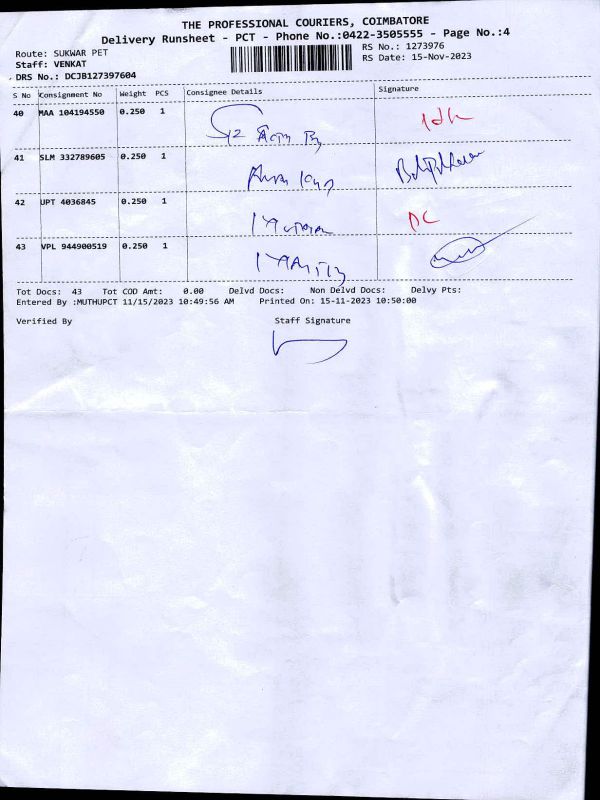 THE PROFESSIONAL COURIERS, COIMBATORE
Delivery Runsheet - PCT - Phone No.:0422-3505555 - Page No.:4
Route: SUKWAR PET
RS No.: 1273976
Staff: VENKAT
RS Date: 15-Nov-2023
DRS No.: DCJB127397604
S No Consignment No Weight PCS Consignee Details Signature
40 MAA 104194550 0.250 1
41 SLM 332789605 0.250 1
42 UPT 4036845 0.250 1 DC
43 VPL 944900519 0.250 1
Tot Docs: 43 Tot COD Amt: 0.00 Delvd Docs: Non Delvd Docs: Delvy Pts:
Entered By :MUTHUPCT 11/15/2023 10:49:56 AM Printed On: 15-11-2023 10:50:00
Verified By Staff Signature